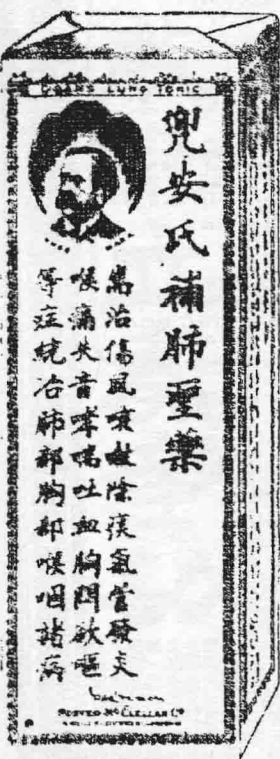 OWBRIDGE'S LUNG TONIC
兜安氏補肺聖藥
專治傷風咳嗽除痰氣管發炎
喉痛失音哮喘吐血胸悶欲嘔
等症統治肺部胸部喉咽諸病
FOSTER-McCLELLAN Co